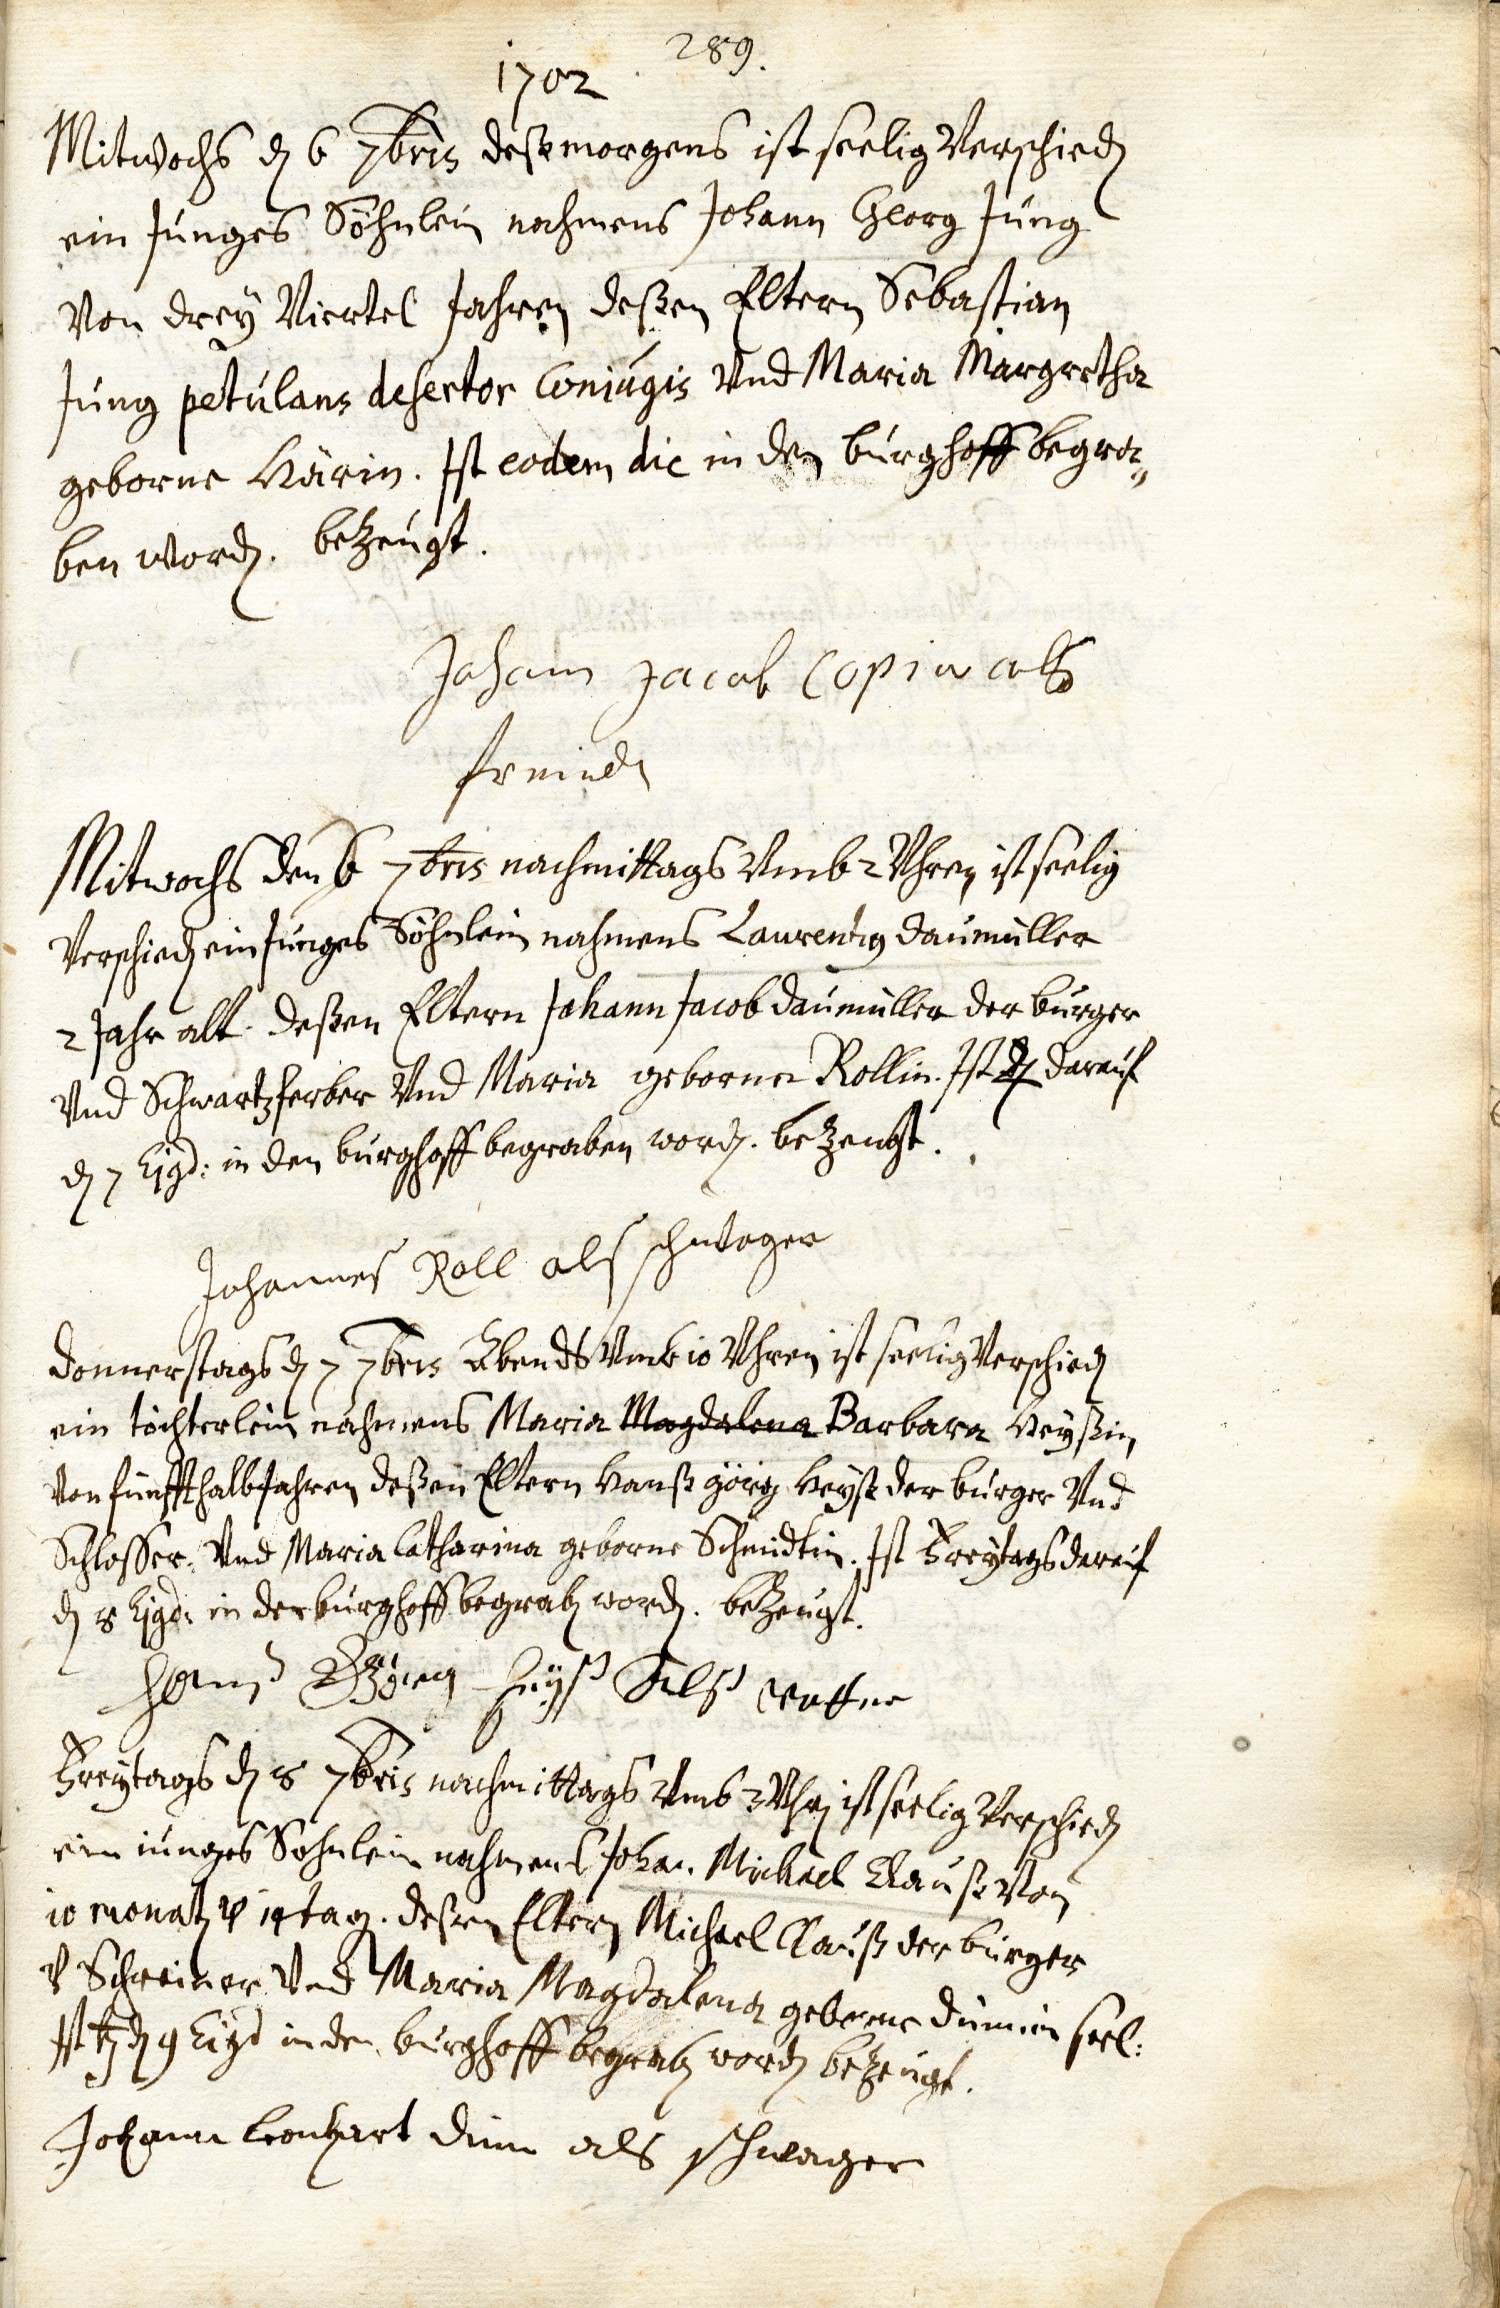 289.
1702
Mitwochs dē 6 7bris deß morgens ist seelig Verschiedē
ein Junges Söhnlein nahmens Johann Georg Jung
Von drey Viertel Jahren deßen Eltern Sebastian
Jung petulans desertor Coniugis Vnd Maria Margretha
geborne Härin. Ist eodem die in den burghoff begra„
ben wordē. beZeugt.
Johann Jacob als
freind
Mitwochs den 6 7bris nachmittags Vmb 2 Vhren ist seelig
Verschiedē ein Junges Söhnlein nahmens Laurentig Daumüller
2 Jahr alt. deßen Eltern Johann Jacob Daumüller der burger
Vnd Schwartzferber Vnd Maria geborne Rollin. Ist darauf
dē 7 Ejgd: in den burghoff begraben wordē. beZeugt.
Johannes Roll als schwager
Donnerstags dē 7 7bris Abends Vmb 10 Vhren ist seelig Verschiedē
ein töchterlein nahmens Maria Magdalena Barbara Heyßin,
Von fünffthalb Jahren deßen Eltern Hanß görg Heyß der burger Vnd
Schlosser. Vnd Maria Catharina geborne Schmidtin. Ist Freytags darauf
dē 8 Ejgd: in der burghoff begrabē wordē. beZeugt.
Hanß Görg Heyß Alß vatter
Freytags dē 8 7bris nachmittags Vmb 3 Vhrē ist seelig Verschiedē
ein iunges Söhnlein nahmens Johan. Michael Clauß Von
10 monatē V 14 tag. deßen Eltern Michael Clauß der burger
V Schreiner Vnd Maria Magdalena geborne Dümin seel:
Ist dē 9 Ejgd in den burghoff begrabē wordē beZeugt.
Johann Leonhart Dim als schwager